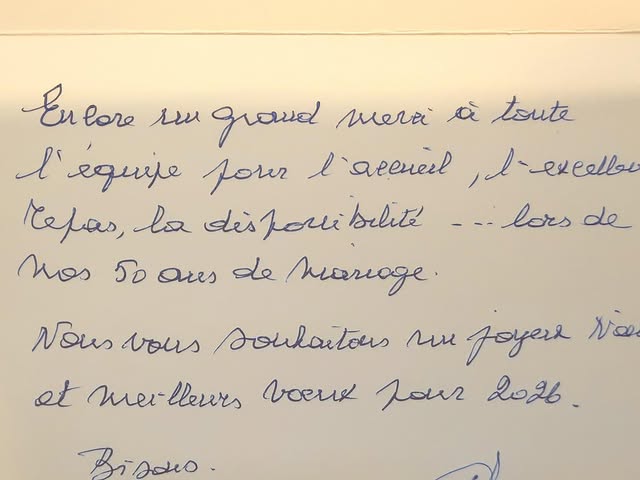 Encore un grand merci à toute
l'équipe pour l'accueil, l'excellen
repas, la disponibilité --- lors de
nos 50 ans de mariage.
Nous vous souhaitons un joyeux Noë
et meilleurs vœux pour 2026.
Bisous.